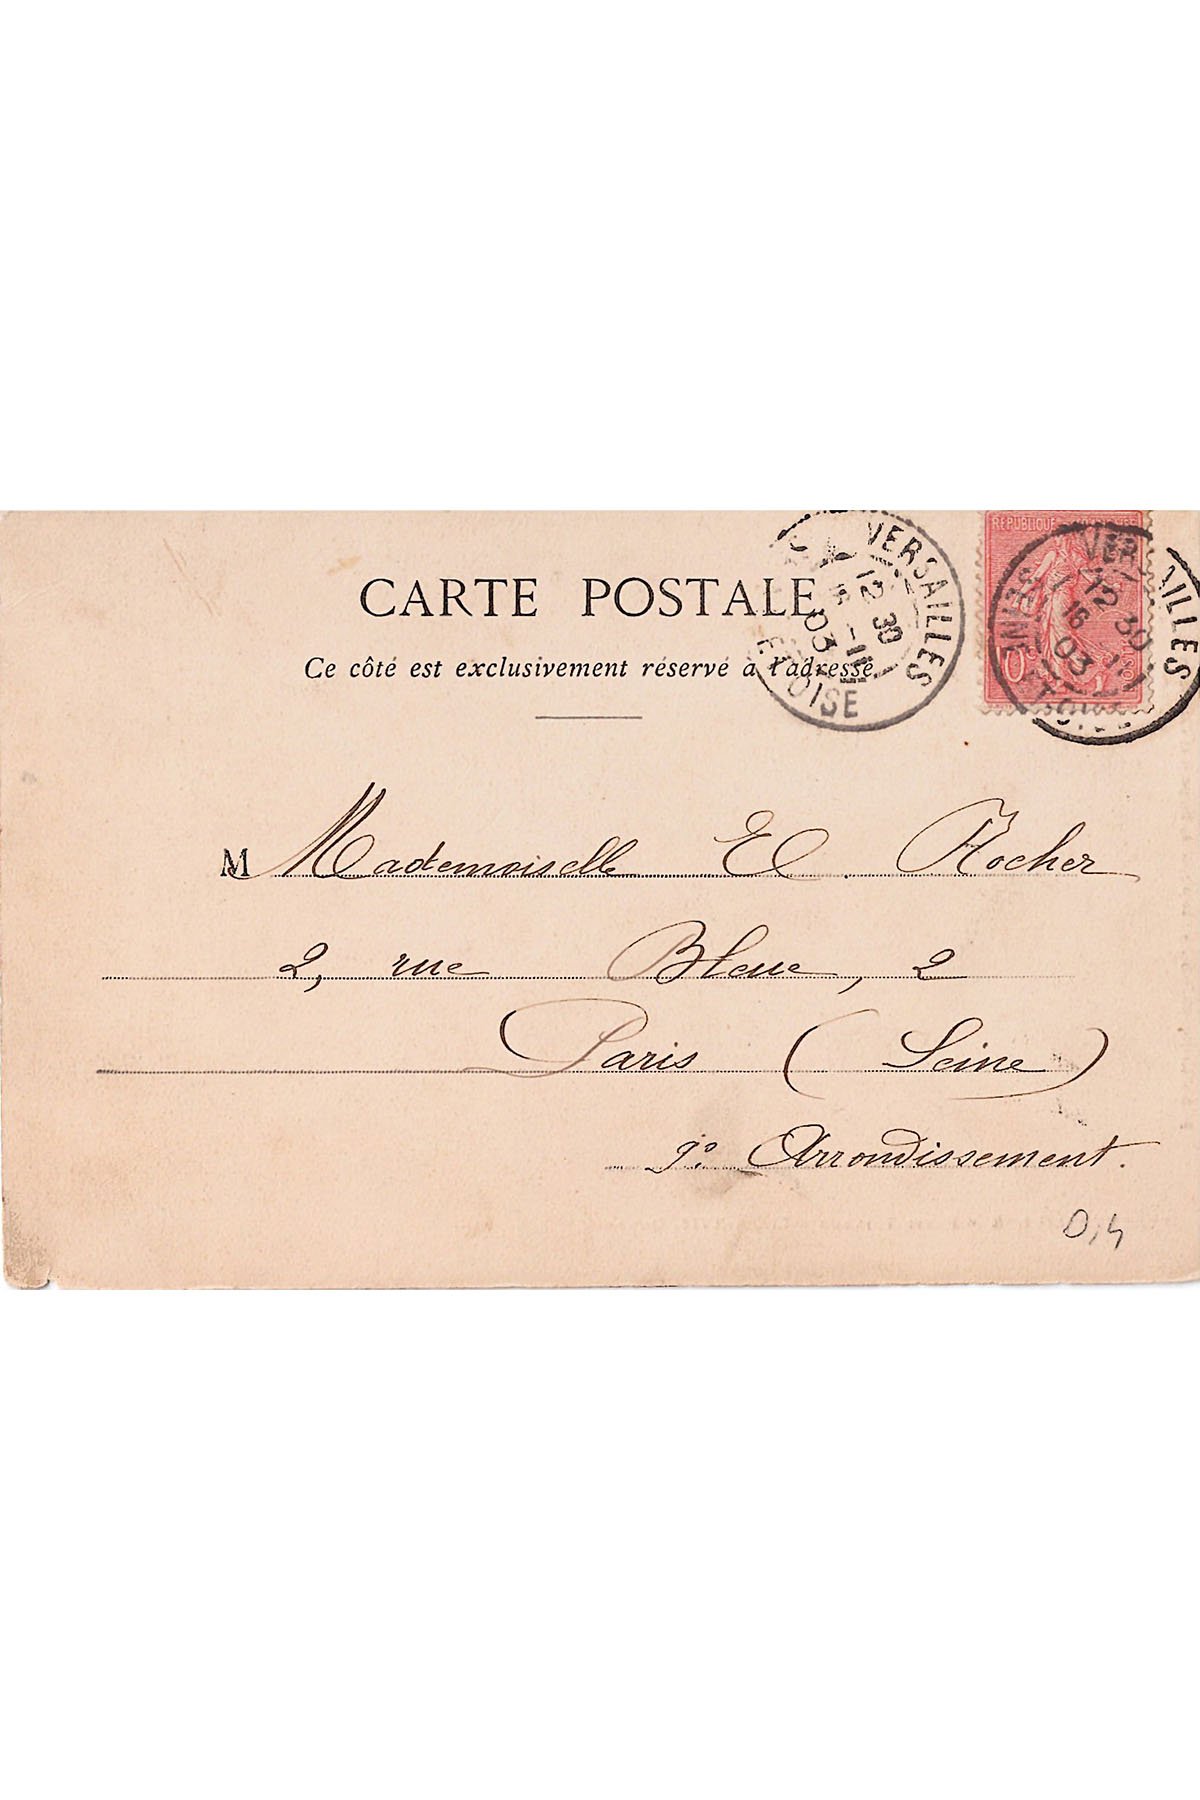 CARTE POSTALE
Ce côté est exclusivement réservé à l'adresse
VERSAILLES
12 30
16 -11
03
ET OISE
RÉPUBLIQUE
VERSAILLES
12 30
16 11
03
SEINE
M Mademoiselle El. Rocher
2, rue Bleue, 2
Paris (Seine)
9e Arrondissement.
0,4